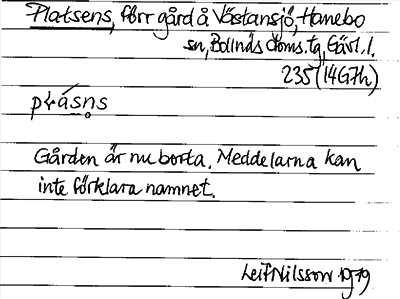 Platsens, förr gård å Västansjö, Hanebo
sn, Bollnäs doms. tg, Gävl. l.
235 (14G7h)
Gården är nu borta. Meddelarna kan
inte förklara namnet.
Leif Nilsson 1979